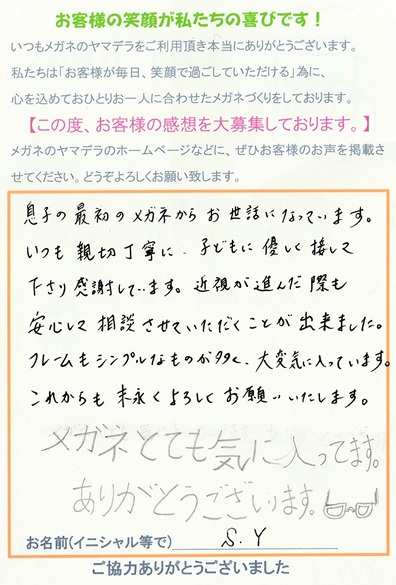 お客様の笑顔が私たちの喜びです！
いつもメガネのヤマデラをご利用頂き本当にありがとうございます。
私たちは「お客様が毎日、笑顔で過ごしていただける」為に、
心を込めておひとりお一人に合わせたメガネづくりをしております。
【この度、お客様の感想を大募集しております。】
メガネのヤマデラのホームページなどに、ぜひお客様のお声を掲載さ
せてください。どうぞよろしくお願い致します。
息子の最初のメガネからお世話になっています。
いつも親切丁寧に、子どもに優しく接して
下さり感謝しています。近視が進んだ際も
安心して相談させていただくことが出来ました。
フレームもシンプルなものが多く、大変気に入っています。
これからも末永くよろしくお願いいたします。
メガネとても気に入ってます。
ありがとうございます。
お名前(イニシャル等で) S.Y
ご協力ありがとうございました